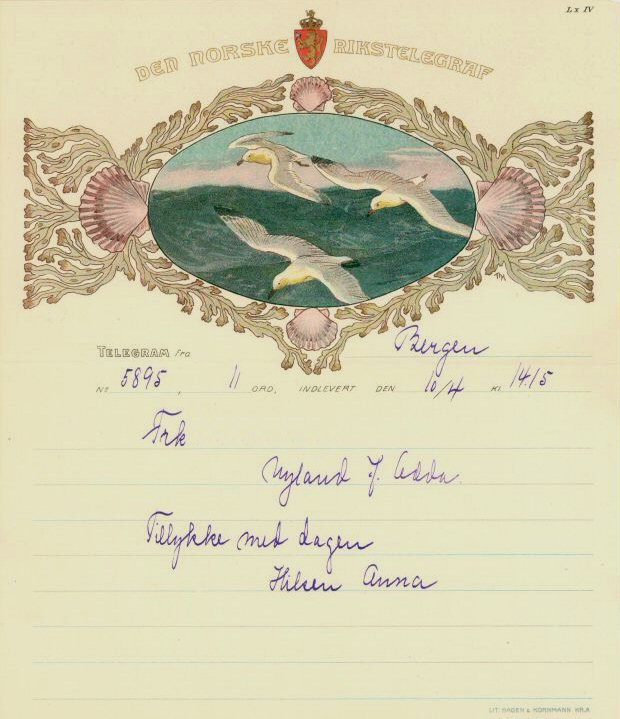 Lx IV
DEN NORSKE RIKSTELEGRAF
TELEGRAM fra Bergen
No 5895, 11 ORD, INDLEVERT DEN 10/4 KL 1415
Frk
Nyland J. Adda.
Tillykke med dagen
Hilsen Anna
LIT HAGEN & KORNMANN KR.A